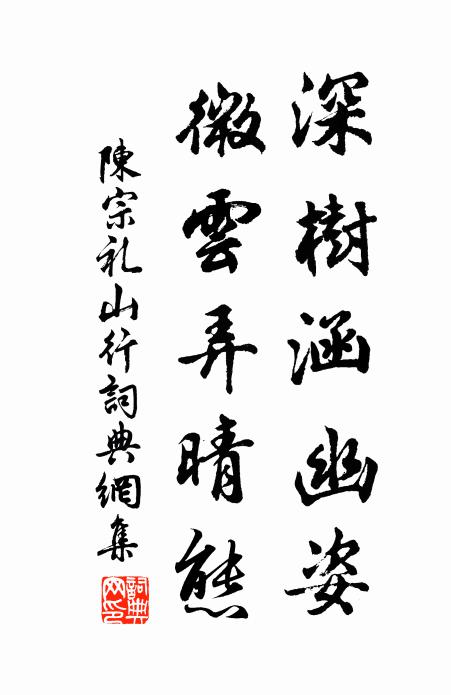 深樹涵幽姿
微雲弄晴態
陳宗礼山行詞典網集
詞典網印